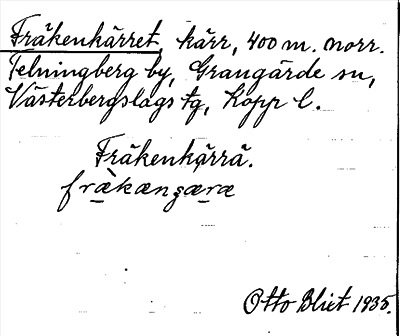 Fräkenkärret, kärr, 400 m. norr.
Telningberg by, Grangärde sn,
Västerbergslags tg, Kopp l.
Fräkenkärrä.
frækængæræ
Otto Blixt 1935.